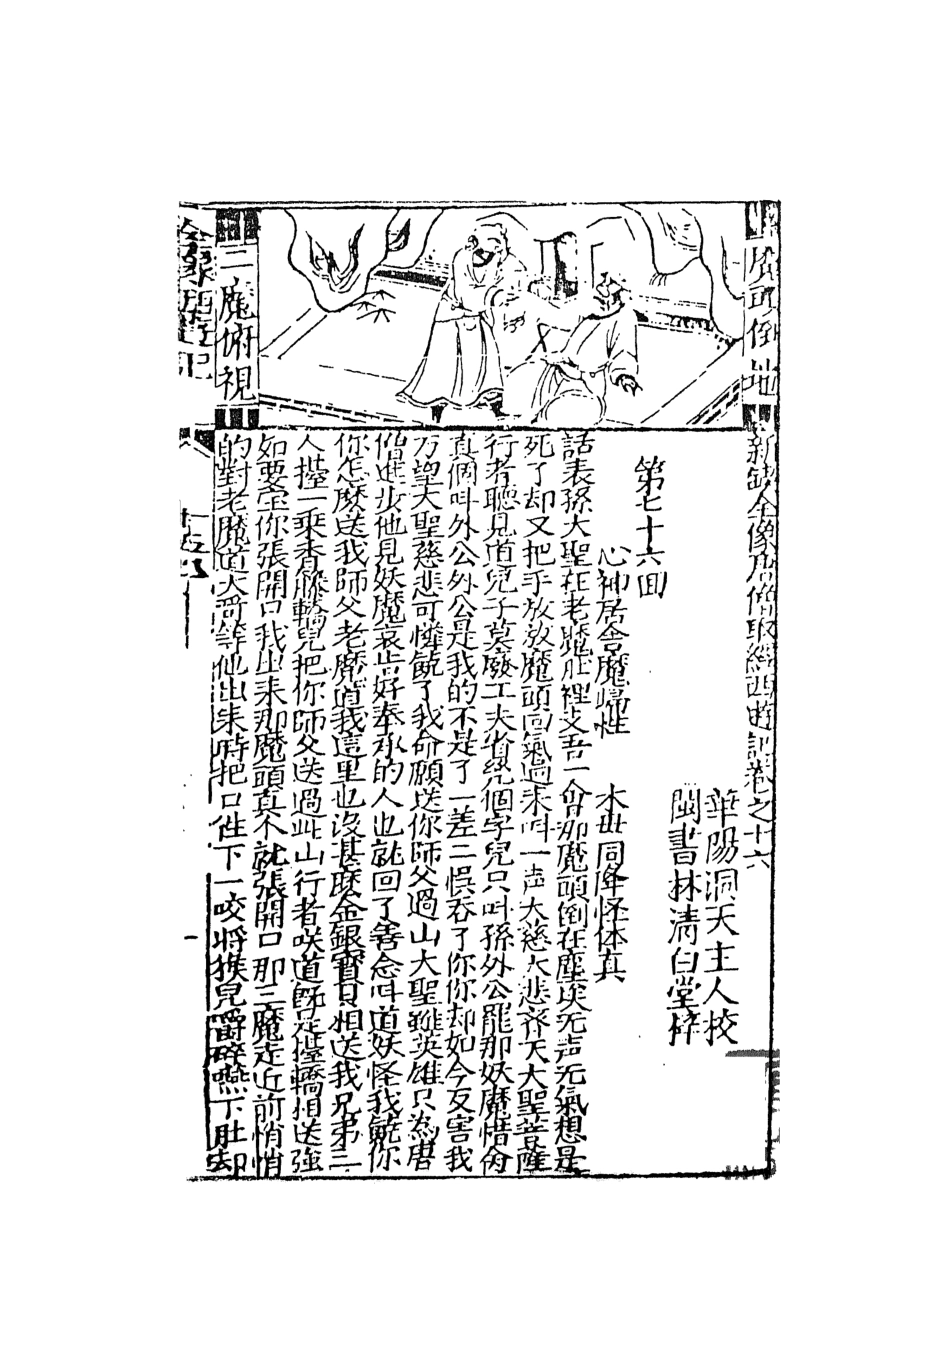 老魔可倒地
二魔俯視
新鍥全像唐僧取經西遊記卷之十六
華陽洞天主人校
閩書林清白堂梓
第七十六回
心神居舍魔歸性　木母同降怪体真
話表孫大聖在老魔肚裡支吾一會那魔頭倒在塵埃无声无氣想是
死了却又把手放放魔頭回氣過來叫一声大慈大悲齊天大聖菩薩
行者聽見道兒子莫廢工夫省幾個字兒只叫孫外公罷那妖魔惜命
真個叫外公外公是我的不是了一差二悞吞了你你却如今反害我
万望大聖慈悲可憐饒了我命願送你師父過山大聖雖英雄只為唐
僧進步他見妖魔哀告好奉承的人也就回了善念叫道妖怪我饒你
你怎麽送我師父老魔道我這里也沒甚麽金銀寶貝相送我兄弟三
人擡一乘香藤轎兒把你師父送過此山行者咲道旣是擡轎相送強
如要宝你張開口我出來那魔頭真个就張開口那三魔走近前悄悄
的對老魔道大哥等他出來時把口徃下一咬將猴兒嚼碎嚥下肚却
全像西遊記